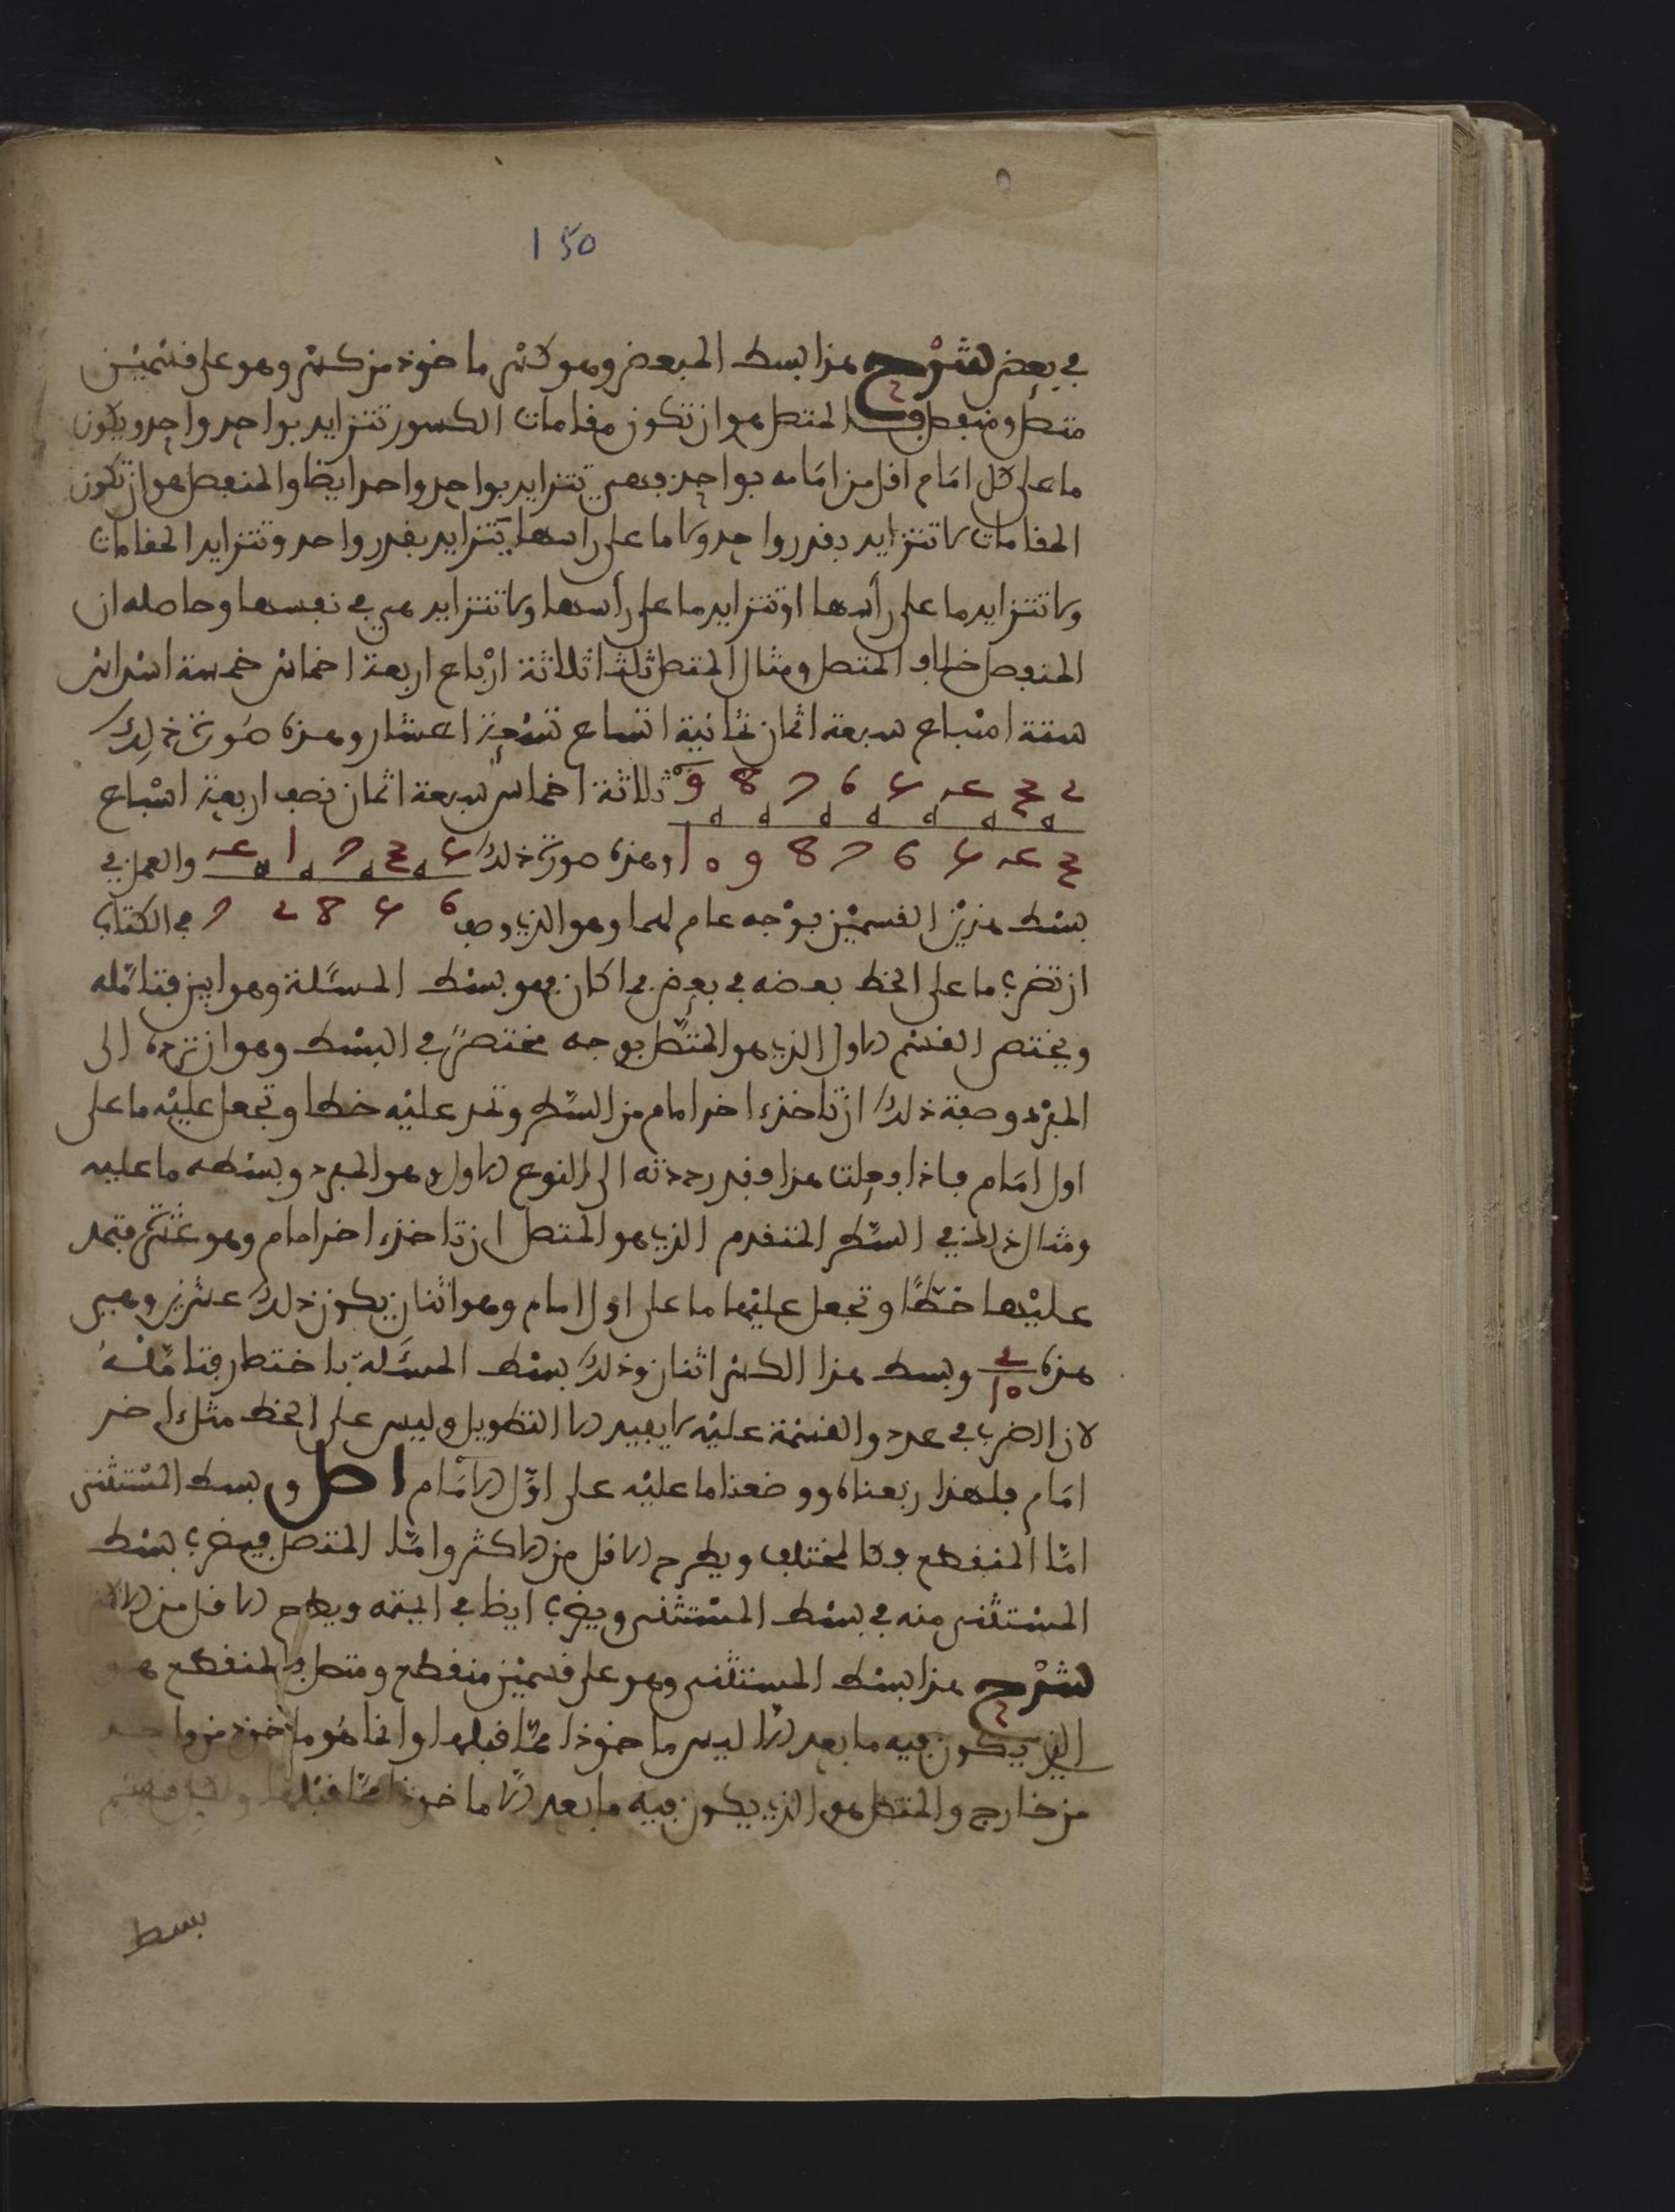 150
في بعض شرح هذا بسط المبعض وهو كسر ماخوذ من كسر وهو على قسمين
متصل ومنفصل فالمتصل هو ان تكون مقامات الكسور تتزايد بواحد واحد ويكون
ما على كل امام اقل من امامه بواحد فهي تتزايد بواحد واحد ايضا والمنفصل هو ان تكون
المقامات لا تتزايد بقدر واحد ولا ما على راسها يتزايد بقدر واحد وتتزايد المقامات
ولا تتزايد ما على رأسها او تتزايد ما على رأسها ولا تتزايد هي في نفسها وحاصله ان
المنفصل خلاف المتصل ومثال المتصل ثلثا ثلاثة ارباع اربعة اخماس خمسة اسداس
ستة اسباع سبعة اثمان ثمانية اتساع تسعة اعشار وهذه صورة ذلك
2 3 4 5 6 7 8 9 ثلاثة اخماس سبعة اثمان نصف اربعة اسباع
3 4 5 6 7 8 9 10 وهذه صورة ذلك 5 3 7 1 4 والعمل في
بسط هذين القسمين بوجه عام لهما وهو الذي وصف 6 5 8 2 7 في الكتاب
ان تضرب ما على الخط بعضه في بعض فما كان فهو بسط المسئلة وهو بين فتامله
ويختص القسم الاول الذي هو المتصل بوجه مختصر في البسط وهو ان ترده الى
المفرد وصفة ذلك ان تاخذ اخر امام من السطر وتمد عليه خطا وتجعل عليه ما على
اول امام فاذا فعلت هذا وقد رددته الى النوع الاول وهو المفرد وبسطه ما عليه
ومثال ذلك في السطر المتقدم الذي هو المتصل ان تاخذ اخر امام وهو عشرة فتمد
عليها خطا وتجعل عليها ما على اول امام وهو اثنان يكون ذلك عشرين وهي
هذه 2/10 وبسط هذا الكسر اثنان وذلك بسط المسئلة باختصار فتامله
لان الضرب في عدد والقسمة عليه لا يفيد الا التطويل وليس على الخط مثل اخر
امام فلهذا رفعناه ووضعنا ما عليه على اول الامام اصل وبسط المستثنى
اما المنقطع فكالمختلف ويطرح الاقل من الاكثر واما المتصل فيضرب بسط
المستثنى منه في بسط المستثنى ويضرب ايضا في ايمته ويطرح الاقل من الاكثر
شرح هذا بسط المستثنى وهو على قسمين منقطع ومتصل فالمنقطع هو
الذي يكون فيه ما بعد الا ليس ماخوذا مما قبلها وانما هو ماخوذ من واحد
من خارج والمتصل هو الذي يكون فيه ما بعد الا ماخوذا مما قبلها ولكل قسم
بسط